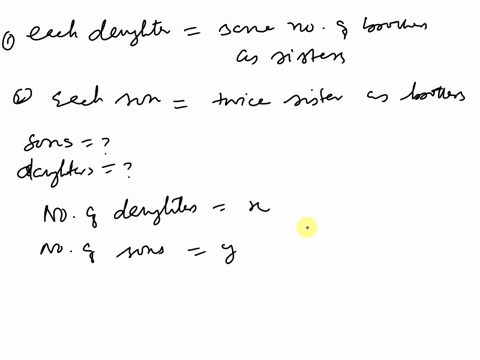 ① each daughter = same no. of brothers
as sisters
② Each son = twice sister as brothers
sons = ?
daughters = ?
No. of daughters = x
No. of sons = y